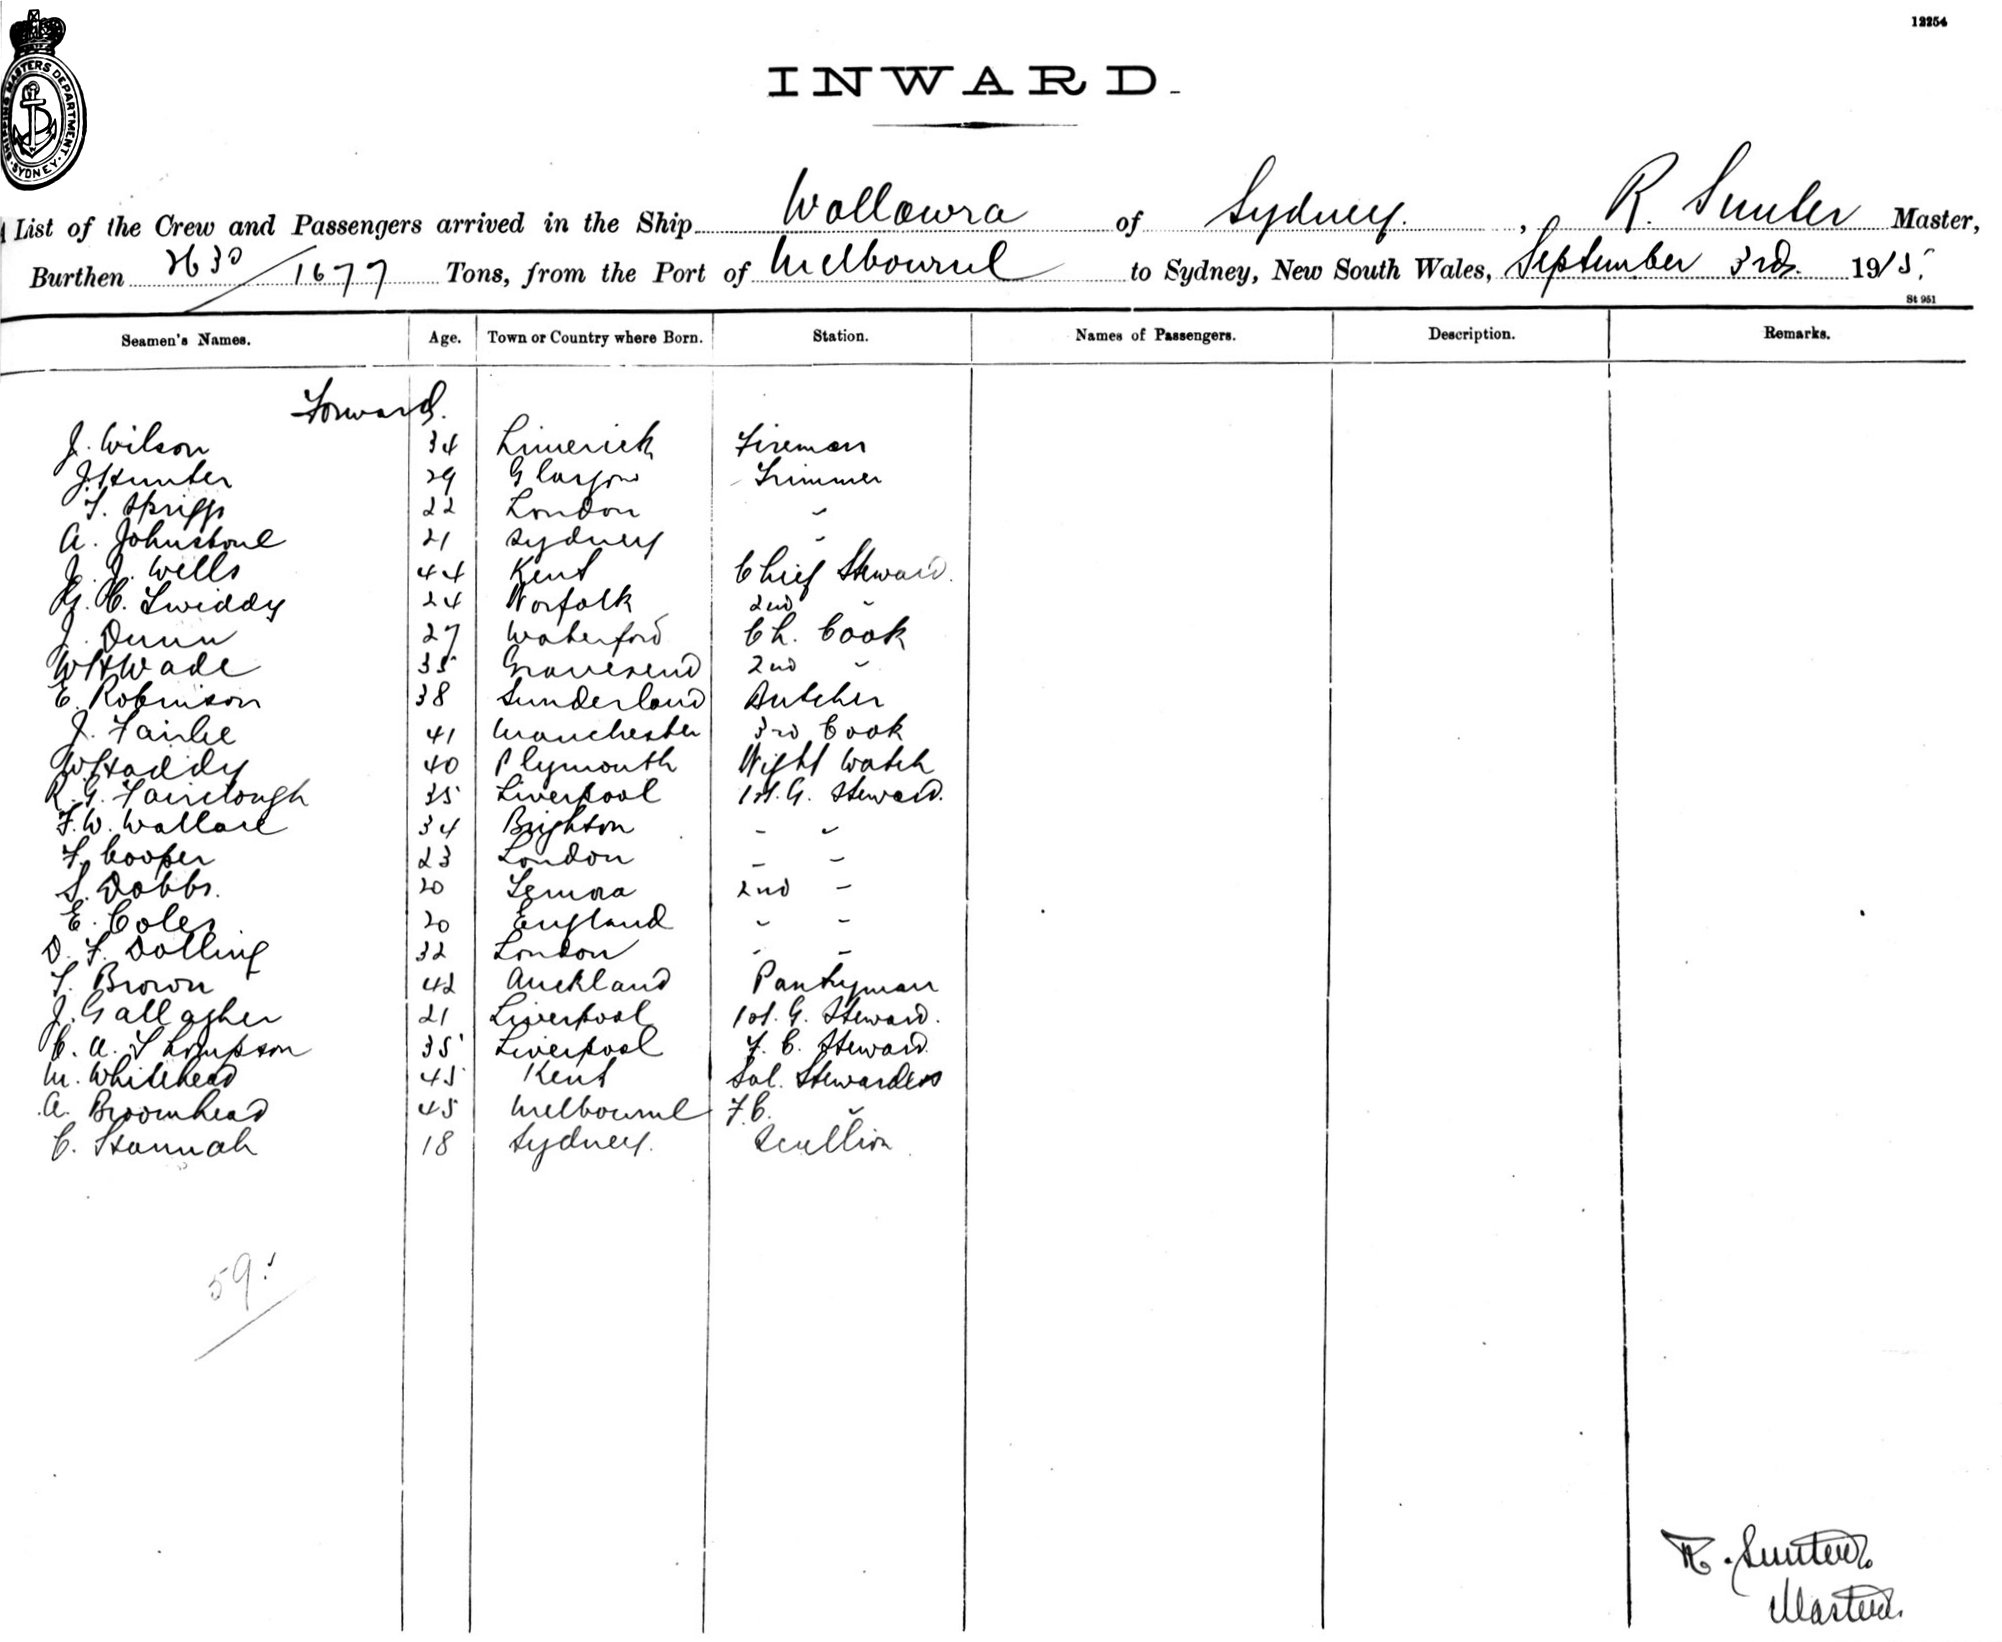 12254
SHIPPING MASTERS DEPARTMENT · SYDNEY ·
INWARD.
List of the Crew and Passengers arrived in the Ship Wollowra of Sydney. , R. Sunter Master,
Burthen 2630/1677 Tons, from the Port of Melbourne to Sydney, New South Wales, September 3rd. 1915.
St 951
Seamen's Names. Age. Town or Country where Born. Station. Names of Passengers. Description. Remarks.
Forward.
J. Wilson 34 Limerick Fireman
J. Hunter 29 Glasgow Trimmer
T. Spriggs 22 London "
A. Johnstone 21 Sydney "
J. J. Wells 44 Kent Chief Steward.
24 Norfolk 2nd "
J. Dunn 27 Waterford Ch. Cook
W H Wade 35 Gravesend 2nd "
E. Robinson 38 Sunderland Butcher
J. Fairlie 41 Manchester 3rd Cook
W Haddy 40 Plymouth Night Watch
R. G. Fairclough 35 Liverpool 1st. G. Steward.
F. W. Wallace 34 Brighton " "
F. Cooper 23 London " "
S. Dobbs. 20 Temora 2nd "
E. Coles 20 England " "
D. F. Dolling 32 London " "
T. Brown 42 Auckland Pantryman
J. Gallagher 21 Liverpool 1st. G. Steward.
C. A. Thompson 35 Liverpool F. C. Steward.
M. Whitehead 45 Kent Sal. Stewardess
A. Broomhead 45 Melbourne F. C. "
C. Hannah 18 Sydney. Scullion
59.
R. Sunter
Master.